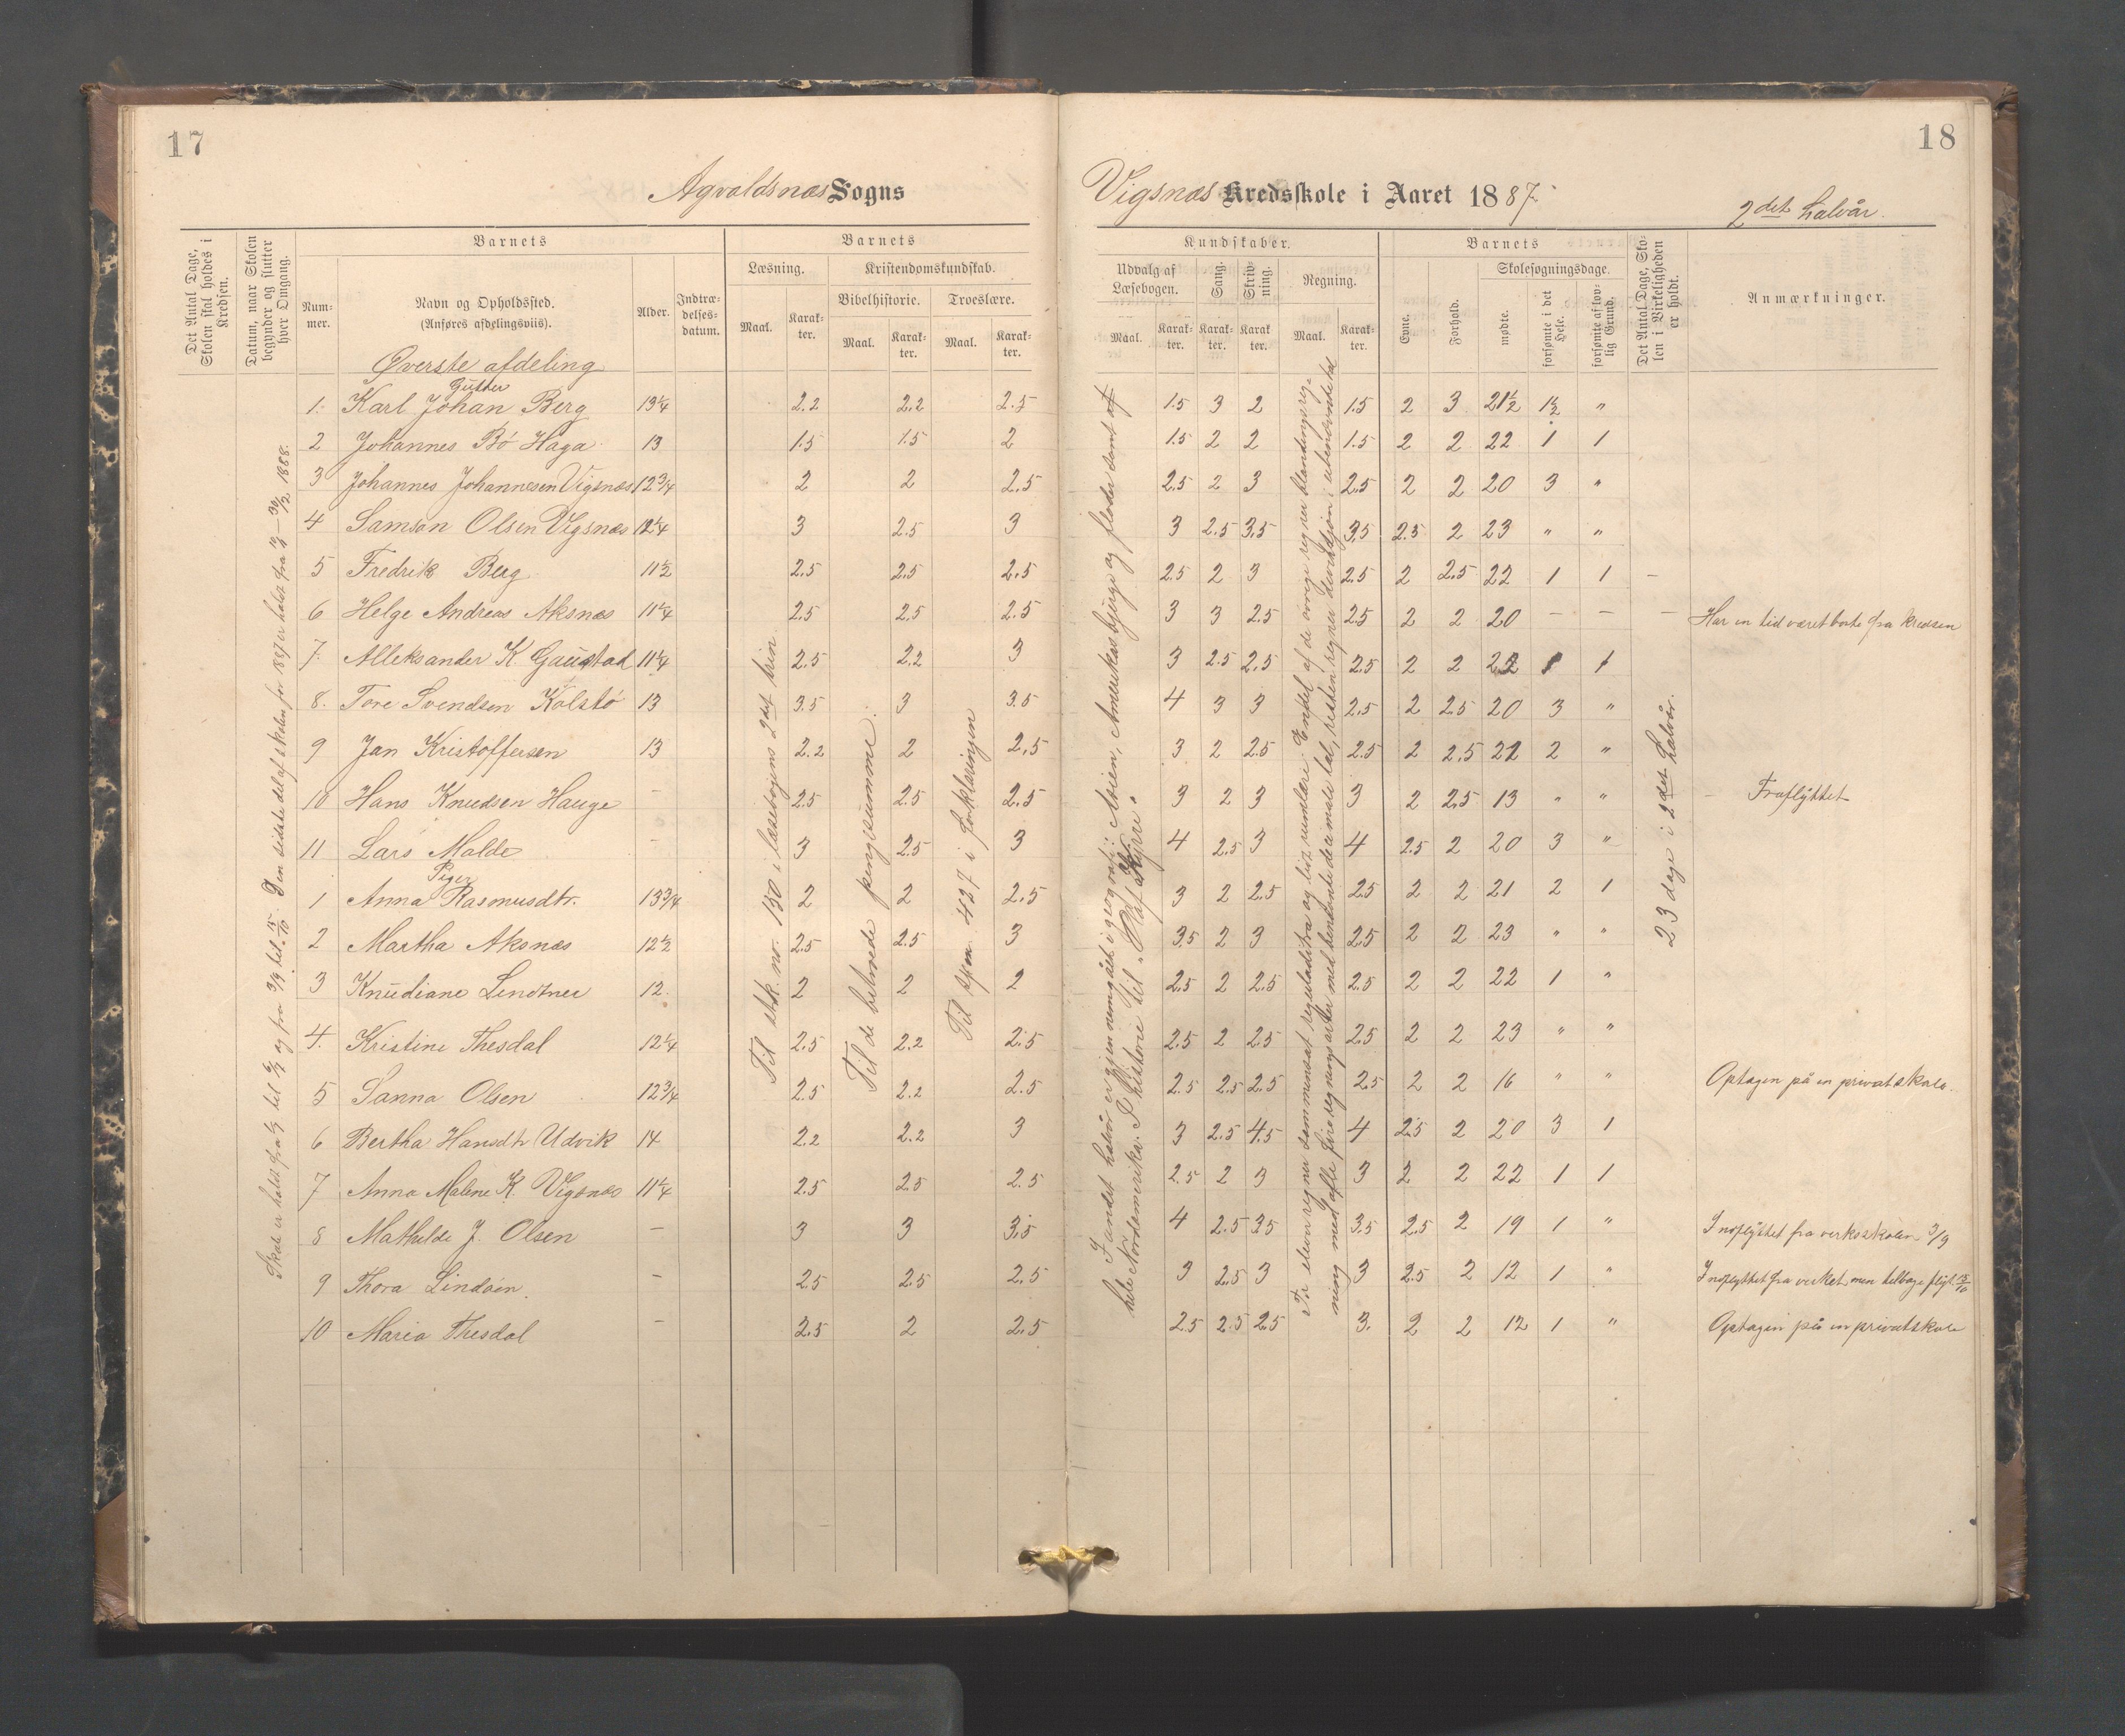 17
18
Agvaldsnæs Sogns
Vigsnæs Kredsskole i Aaret 1887.
2det halvår.
Det Antal Dage, Skolen skal holdes i Kredsen.
Datum, naar Skolen begynder og slutter hver Omgang.
Barnets
Barnets
Kundskaber.
Barnets
Det Antal Dage, Skolen i Virkeligheden er holdt.
Anmærkninger.
Nummer.
Navn og Opholdssted. (Anføres afdelingsviis).
Alder.
Indtrædelsesdatum.
Læsning.
Kristendomskundskab.
Bibelhistorie.
Troeslære.
Udvalg af Læsebogen.
Sang.
Skrivning.
Regning.
Evne.
Forhold.
Skolesøgningsdage.
mødte.
forsømte i det Hele.
forsømte af lovlig Grund.
Maal. Karakter. Maal. Karakter. Maal. Karakter. Maal. Karakter. Karakter. Karakter. Maal. Karakter.
Øverste afdeling
Gutter
1. Karl Johan Berg 13 1/4 2.2 2.2 2.5 1.5 3 2 1.5 2 3 21 1/2 1 1/2 "
2 Johannes Bö Haga 13 1.5 1.5 2 1.5 2 2 1.5 2 2 22 1 1
3 Johannes Johannesen Vigsnæs 12 3/4 2 2 2.5 2.5 2 3 2.5 2 2 20 3 "
4 Samson Olsen Vigsnæs 12 1/4 3 2.5 3 3 2.5 3.5 3.5 2.5 2 23 " "
5 Fredrik Berg 11 1/2 2.5 2.5 2.5 2.5 2 3 2.5 2 2.5 22 1 1 –
6 Helge Andreas Aksnæs 11 1/4 2.5 2.5 2.5 3 3 2.5 2.5 2 2 20 – – – Har en tid været borte fra kredsen
7. Alleksander K Gaustad 11 1/4 2.5 2.2 3 3 2.5 2.5 2.5 2 2 22 1 1
8. Tore Svendsen Kolstö 13 3.5 3 3.5 4 3 3 2.5 2 2.5 20 3 "
9 Jan Kristoffersen 13 2.2 2 2.5 3 2 2.5 2.5 2 2.5 21 2 "
10 Hans Knudsen Hauge – 2.5 2.5 2.5 3 2 3 3 2 2.5 13 " " – Fraflyttet
11 Lars Malde – 3 2.5 3 4 2.5 3 4 2.5 2 20 3 "
Piger
1 Anna Rasmusdtr. 13 3/4 2 2 2.5 3 2 2.5 2.5 2 2 21 2 1
2 Martha Aksnæs 12 1/2 2.5 2.5 3 3.5 2 3 2.5 2 2 23 " "
3 Knudiane Lindtner 12. 2 2 2 2.5 2 2.5 2.5 2 2 22 1 "
4. Kristine Thesdal 12 1/4 2.5 2.2 2.5 2.5 2 2.5 2.5 2 2 23 " "
5 Sanna Olsen 12 3/4 2.5 2.2 2.5 2.5 2.5 2.5 2.5 2 2 16 " " Optagen på en privatskole.
6 Bertha Hansdtr Udvik 14 2.2 2.2 3 3 2.5 4.5 4 2.5 2 20 3 1
7 Anna Malene K. Vigsnæs 11 1/4 2.5 2.5 2.5 2.5 2 3 3 2 2 22 1 1
8 Mathilde J. Olsen – 3 3 3.5 4 2.5 3.5 3.5 2.5 2 19 1 " Indflyttet fra verksskolen 3/9
9 Thora Lindöen. – 2.5 2.5 2.5 3 2.5 3 3 2.5 2 12 1 " Indflyttet fra verket men tilbage flyt. 15/10
10 Maria Thesdal – 2.5 2 2.5 2.5 2.5 2.5 3. 2 2 12 1 " Optagen på en privatskole
og fra 3/9 til 15/10. Den sidste del af skolen for 1887 er holdt fra – 1888.
Til stk. no. 130 i læsebogens 2det trin
Til de betroede pengesumme.
Til spm. 427 i forklaringen
I andet halvår er gjennemgået i geografi: Asien, Amerikas bjerge og floder samt
hele Nordamerika. I historie til "Olaf Kyrre".
ning med alle fire regningsarter med benævnte decimale tal, resten regner
23 dage i 2det halvår.